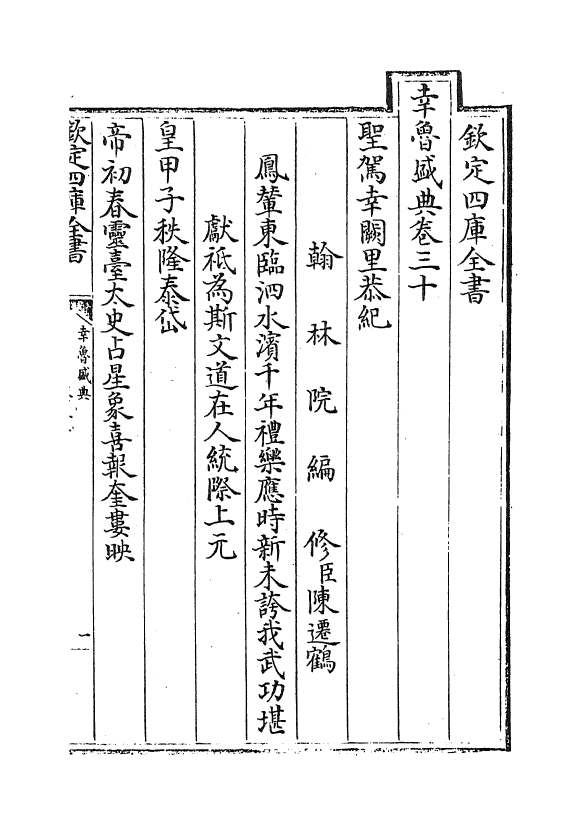 欽定四庫全書
幸魯盛典卷三十
聖駕幸闕里恭紀
翰林院編修臣陳遷鶴
鳳輦東臨泗水濱千年禮樂應時新未誇我武功堪
獻祗為斯文道在人統際上元
皇甲子秩隆泰岱
帝初春靈臺太史占星象喜報奎婁映
欽定四庫全書
幸魯盛典
一